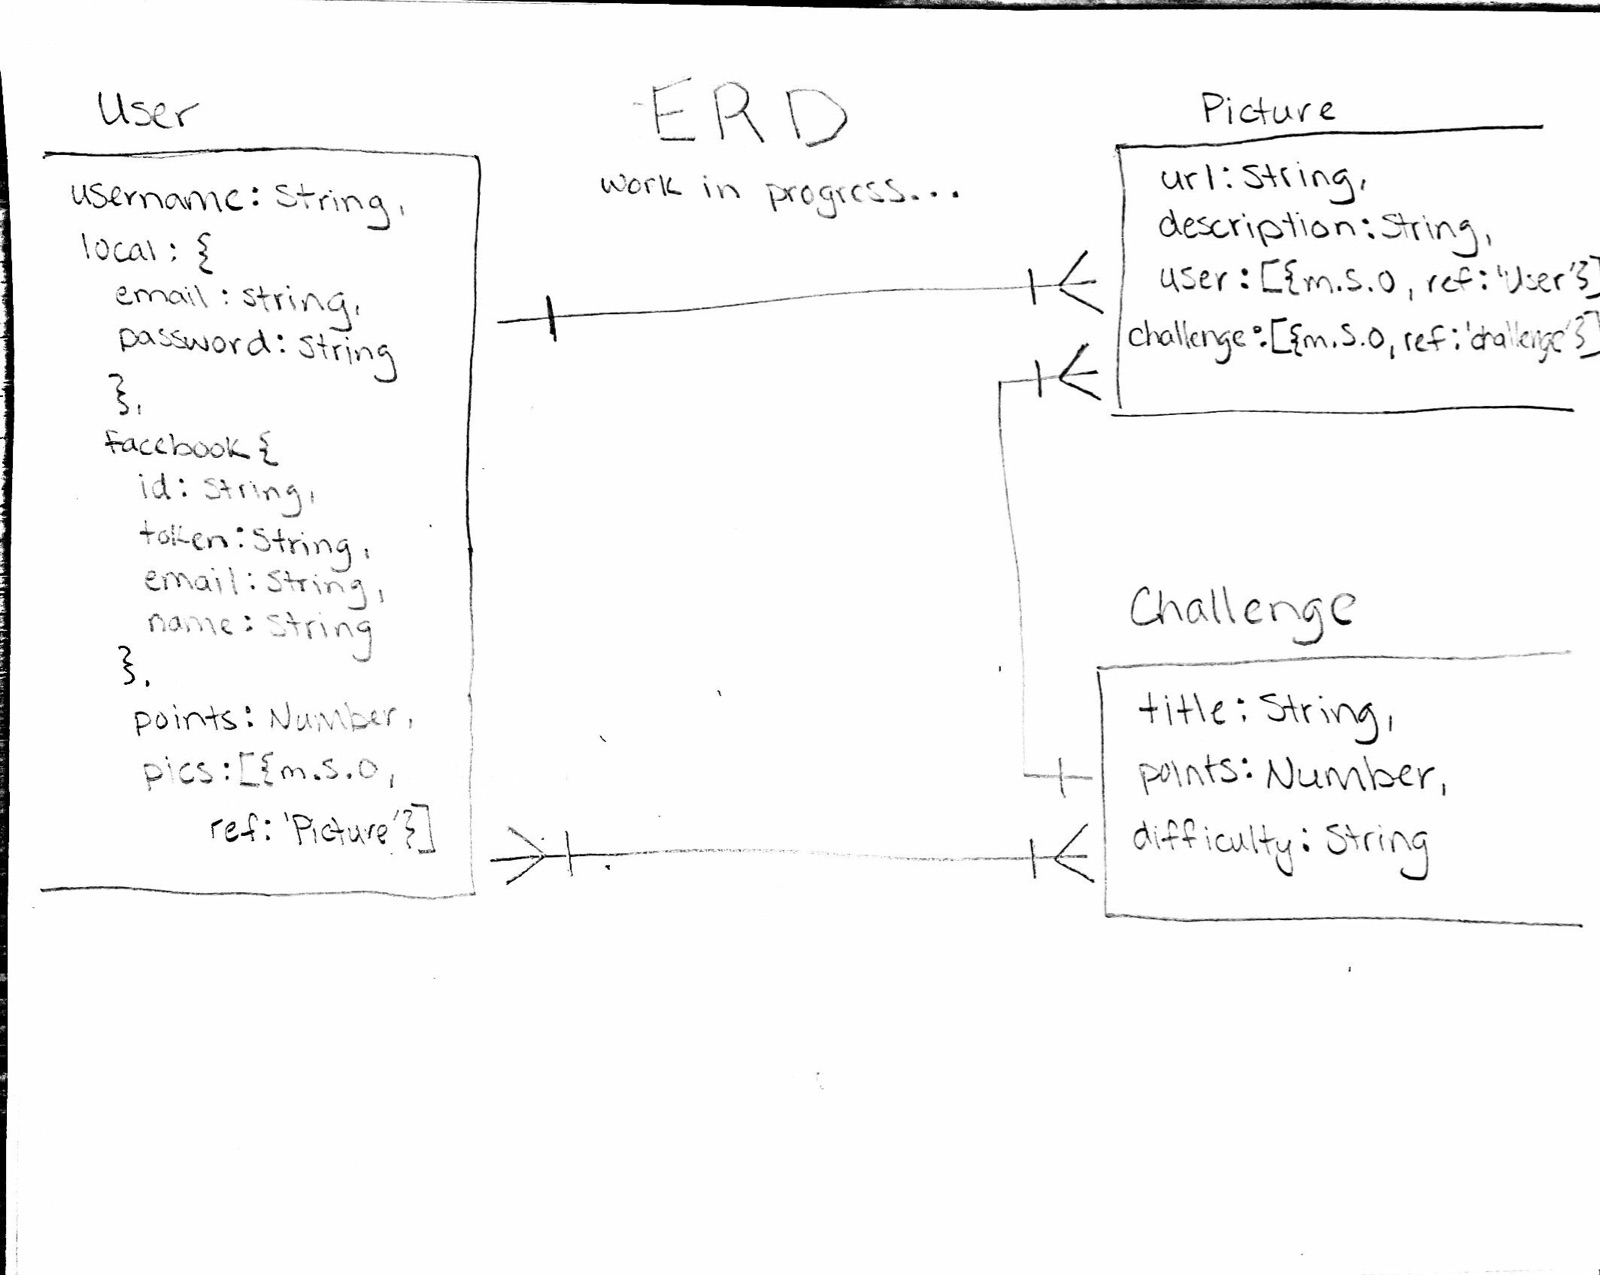 ERD
work in progress...
User
username: String,
local: {
email: String,
password: String
},
facebook {
id: String,
token: String,
email: String,
name: String
},
points: Number,
pics: [{m.S.O,
ref: 'Picture'}]
Picture
url: String,
description: String,
user: [{m.S.O, ref: 'User'}]
challenge: [{m.S.O, ref: 'challenge'}]
Challenge
title: String,
points: Number,
difficulty: String